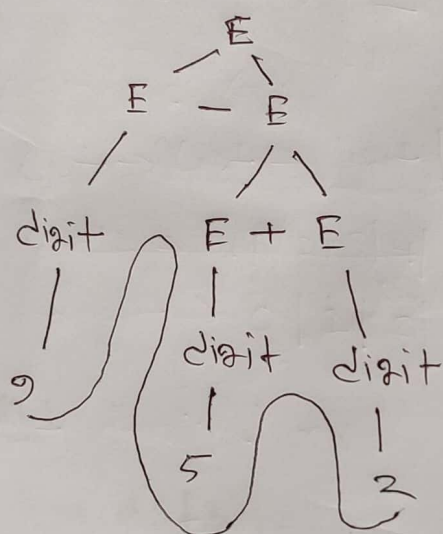 E
E - E
digit E + E
digit digit
9
5 2